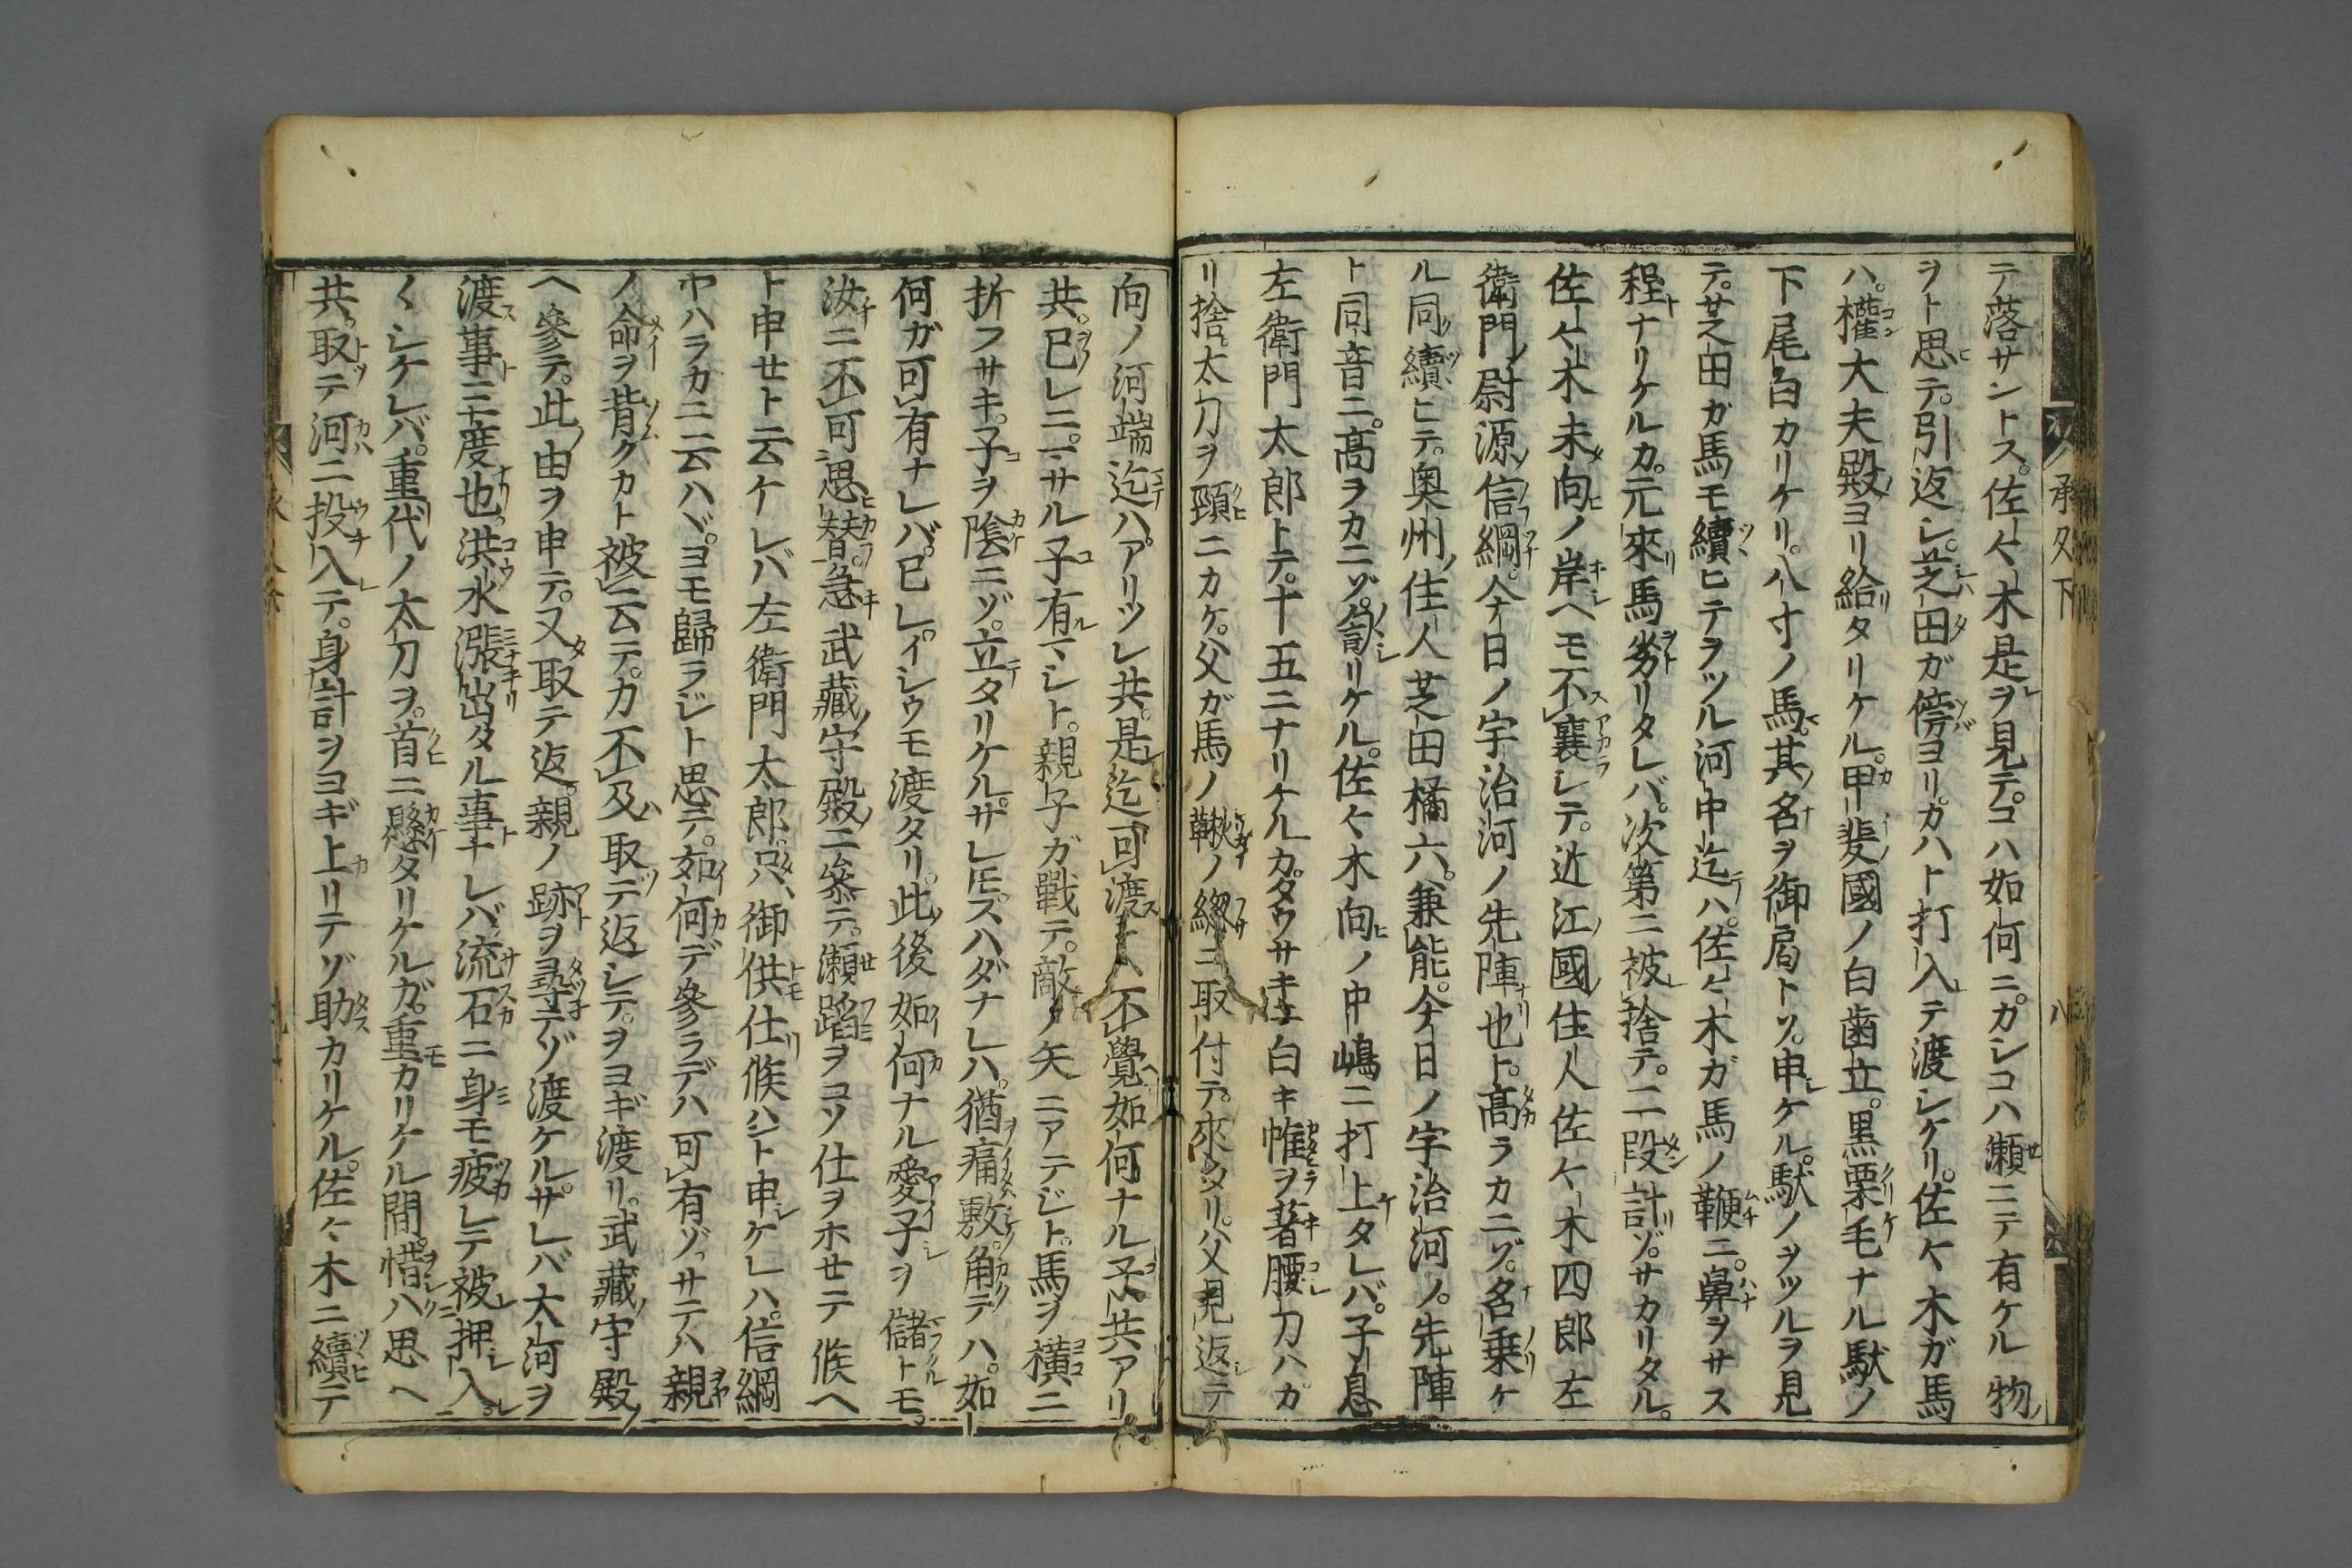 テ落サントス。佐々木是ヲ見テ。コハ如何ニ。ガレコハ瀬ニテ有ケル物
ヲト思テ。引返シ。芝田ガ傍ヨリ。カハト打入テ渡シケリ。佐々木ガ馬
ハ。權大夫殿ヨリ給タリケル。甲斐國ノ白齒立。黒栗毛ナル駄ノ
下尾白カリケリ。八寸ノ馬。其名ヲ御局トソ。申ケル。駄ノヲツルヲ見
テ。芝田ガ馬モ續ヒテヲツル河中迄ハ。佐々木ガ馬ノ鞭ニ。鼻ヲサス
程ナリケルカ。元來馬劣リタレバ。次第ニ被捨テ。二段計ゾ。サカリタル。
佐々木未向ノ岸ヘモ不襄シテ。近江國住人佐々木四郎左
衛門尉源信綱。今日ノ宇治河ノ先陣也ト。髙ラカニゾ。名乗ケ
ル同續ヒテ。奥州住人芝田橘六。兼能。今日ノ宇治河ノ。先陣
ト同音ニ。髙ラカニゾ。訇リケル。佐々木向ノ中嶋ニ打上タレバ。子息
左衛門太郎トテ。十五ニナリケルカ。タウサキニ白キ帷ヲ著腰刀ハカ
リ捨。太刀ヲ頸ニカケ。父ガ馬ノ鞦ノ總ニ取付テ。來タリ。父見返テ
向ノ河端迄ハ。アリツレ共。是迄可渡トハ不覺如何ナル子共アリ。
共。已レニ。サル子有マシト。親子ガ戰テ。敵ノ矢ニアテジト。馬ヲ横ニ
折フサキ。子ヲ陰ニゾ。立タリケル。サレ𪜈スハダナレハ。猶痛敷。角テハ。如
何ガ可有ナレバ。已レ。イシウモ渡タリ。此後如何ナル愛子ヲ儲トモ。
汝ニ不可思替。急キ武藏守殿ニ參テ。瀬蹈ヲコソ仕ヲホセテ候ヘ
ト申せト云ケレバ左衛門太郎。只ハ御供仕候ハント申ケレハ。信綱
ヤハラカニ云ハヾ。ヨモ歸ラジト思テ。如何デ參ラデハ可有ゾ。サテハ親
ノ命ヲ背クカト被云テ。力不及取テ返シテ。ヲヨギ渡リ。武藏守殿
ヘ參テ。此由ヲ申テ。又取テ返。親ノ跡ヲ尋テゾ渡ケル。サレバ大河ヲ
渡事三度也。洪水漲出タル事ナレバ。流石ニ身モ疲レテ被押入。
〱シケレバ。重代ノ太刀ヲ。首ニ懸タリケルガ。重カリケル間。惜ハ思ヘ
共。取テ河ニ投入テ。身計ヲヨギ上リテゾ助カリケル。佐々木ニ續テ